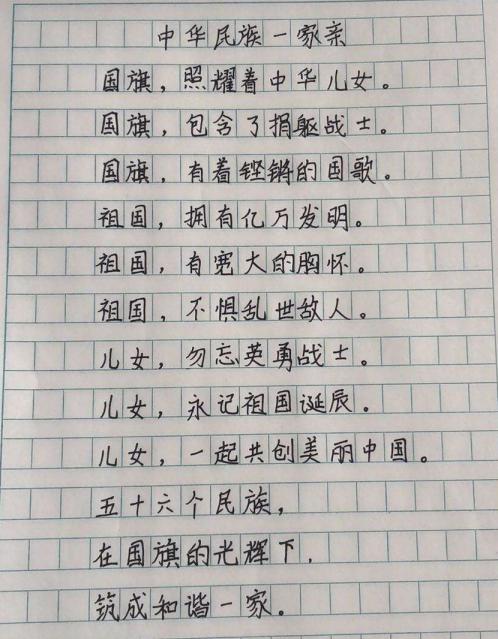 中华民族一家亲
国旗，照耀着中华儿女。
国旗，包含了捐躯战士。
国旗，有着铿锵的国歌。
祖国，拥有亿万发明。
祖国，有宽大的胸怀。
祖国，不惧乱世敌人。
儿女，勿忘英勇战士。
儿女，永记祖国诞辰。
儿女，一起共创美丽中国。
五十六个民族，
在国旗的光辉下，
筑成和谐一家。